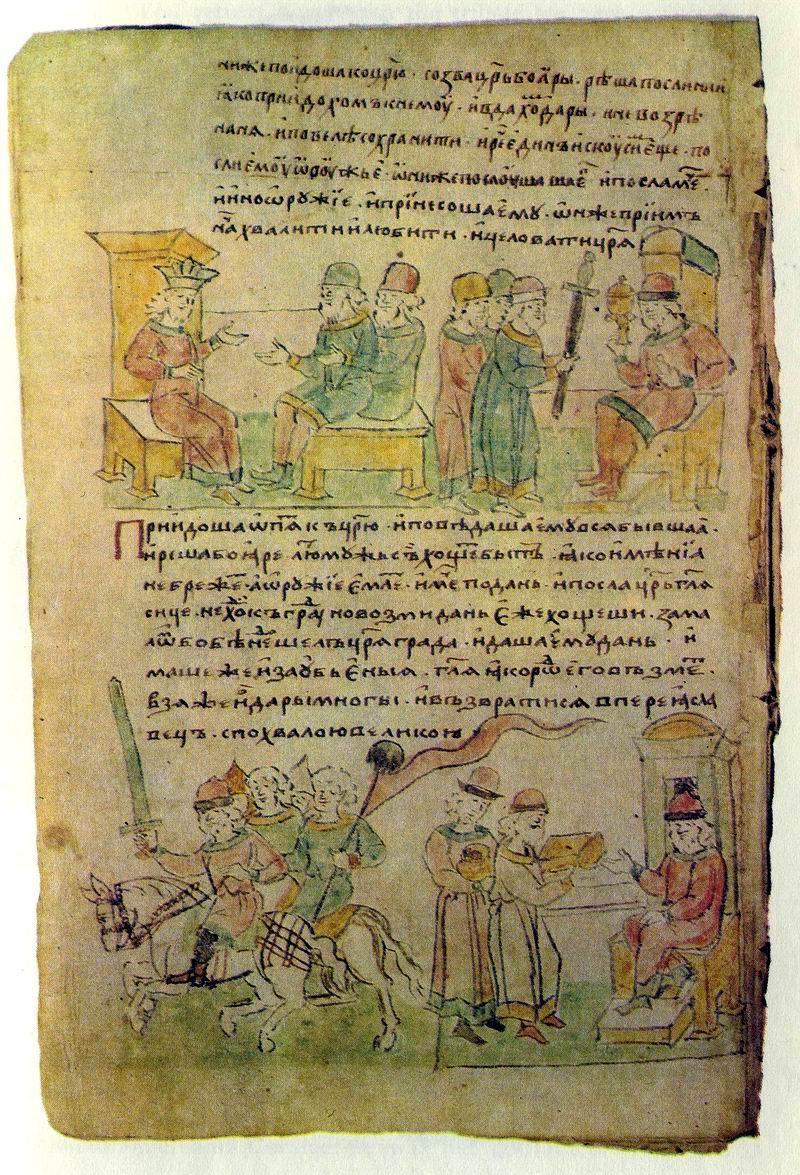 ниже поидоша коцр҃ю · созва цр҃ь боꙗры · рѣша послании
ꙗко приидохомъ к немоу · и вдахо дары · и не возрѣ
на нꙗ · и повелѣ сохранити · и рее единъ искоуси еще · по
сли емоу ѡроужье · ѡни же послоушаша е · и послам е
и ино ѡружїе · и принесоша ему · ѡнже приимъ
на хвалити и любити · и целовати црѧ
Приидоша ѡпѧ къ црю · и повѣдаша ему всѧ бывшаа ·
и рѣша боꙗре лю мужьсъ хоще быть · ꙗко имѣнїа
небреже · а ѡружїе емле · име по дань · и посла црь глѧ
сице · не хо къ гра но возми дань еже хощеши · зама
ло бо бѣ не шелъ црѧграда · и даша ему дань · и
маше же и за убьеныꙗ · глѧ ꙗко ро его възме ·
взѧ же и дары многы · и възвратисѧ в переꙗсла
вець · с похвалою великою